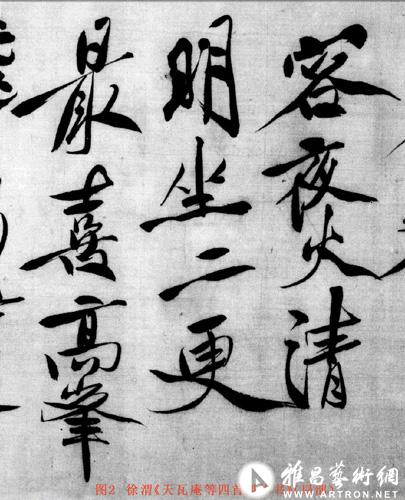 容夜火清
明坐二更
最喜高峯
图2 徐渭《天瓦庵等四首
雅昌藝術網
WWW.ARTRON.NET